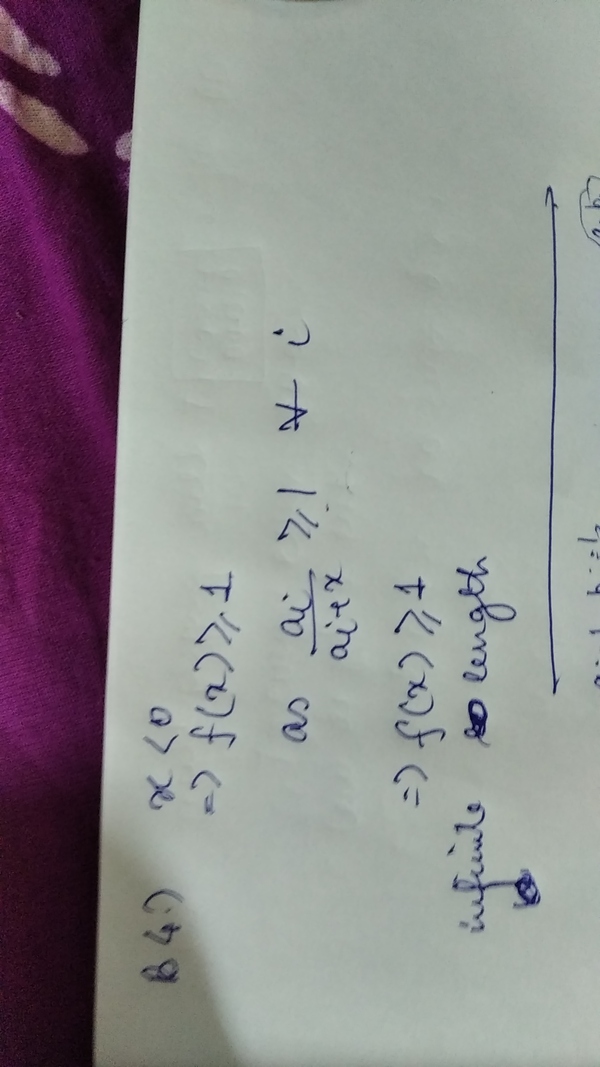 B4:) x<0
=> f(x) ≥ 1
as ai/ai+x ≥ 1 ∀ i
=> f(x) ≥ 1
infinite length